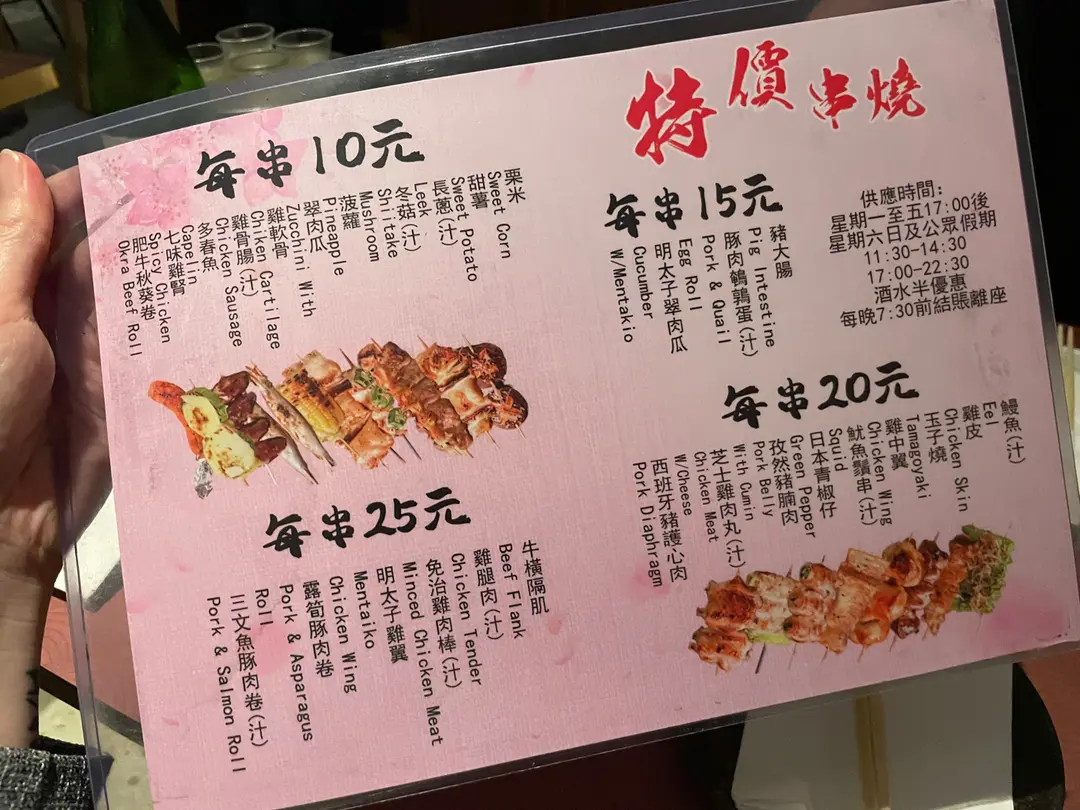 特價串燒
供應時間：
星期一至五17:00後
星期六日及公眾假期
11:30-14:30
17:00-22:30
酒水半優惠
每晚7:30前結賬離座
每串10元
粟米
Sweet Corn
甜薯
Sweet Potato
長蔥(汁)
Leek
冬菇(汁)
Shiitake
Mushroom
菠蘿
Pineapple
翠肉瓜
Zucchini With
雞軟骨
Chiken Cartilage
雞骨腸(汁)
Chicken Sausage
多春魚
Capelin
七味雞腎
Spicy Chicken
肥牛秋葵卷
Okra Beef Roll
每串15元
豬大腸
Pig Intestine
豚肉鵪鶉蛋(汁)
Pork & Quail
Egg Roll
明太子翠肉瓜
Cucumber
W/Mentakio
每串20元
鰻魚(汁)
Eel
雞皮
Chicken Skin
玉子燒
Tamagoyaki
雞中翼
Chicken Wing
魷魚鬚串(汁)
Squid
日本青椒仔
Green Pepper
孜然豬腩肉
Pork Belly
With Cumin
芝士雞肉丸(汁)
Chicken Meat
W/Cheese
西班牙豬護心肉
Pork Diaphragm
每串25元
牛橫隔肌
Beef Flank
雞腿肉(汁)
Chicken Tender
免治雞肉棒(汁)
Minced Chicken Meat
明太子雞翼
Mentaiko
Chicken Wing
露筍豚肉卷
Pork & Asparagus
Roll
三文魚豚肉卷(汁)
Pork & Salmon Roll